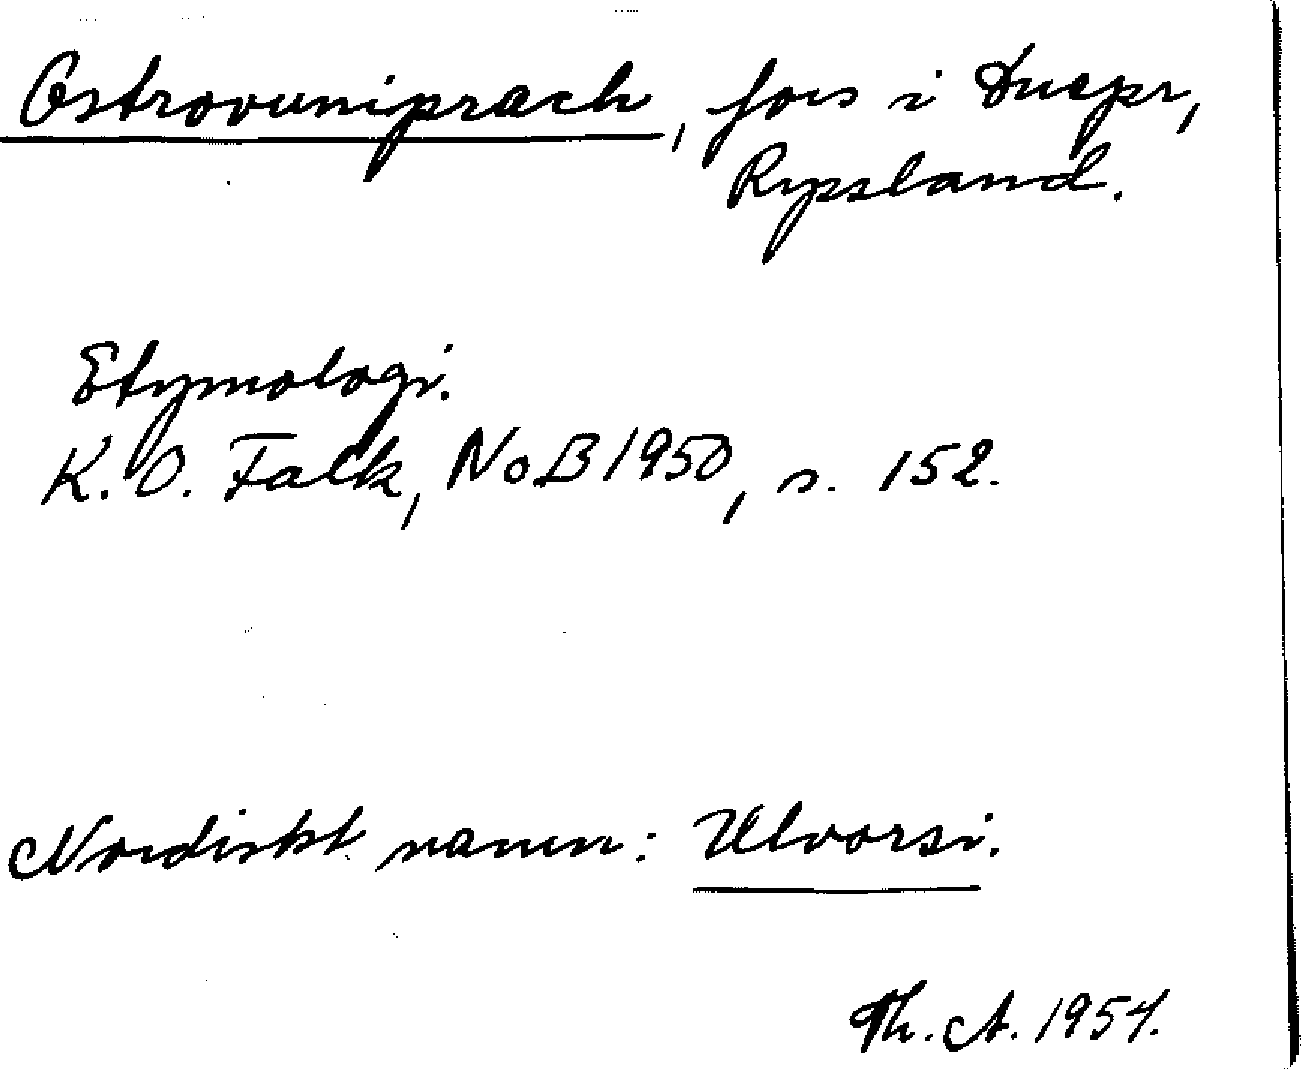 Ostrovuniprach, fors i Dnepr,
Ryssland.
Etymologi.
K. O. Falk, NoB 1950, s. 152.
Nordiskt namn: Ulvorsi.
Th. A. 1954.